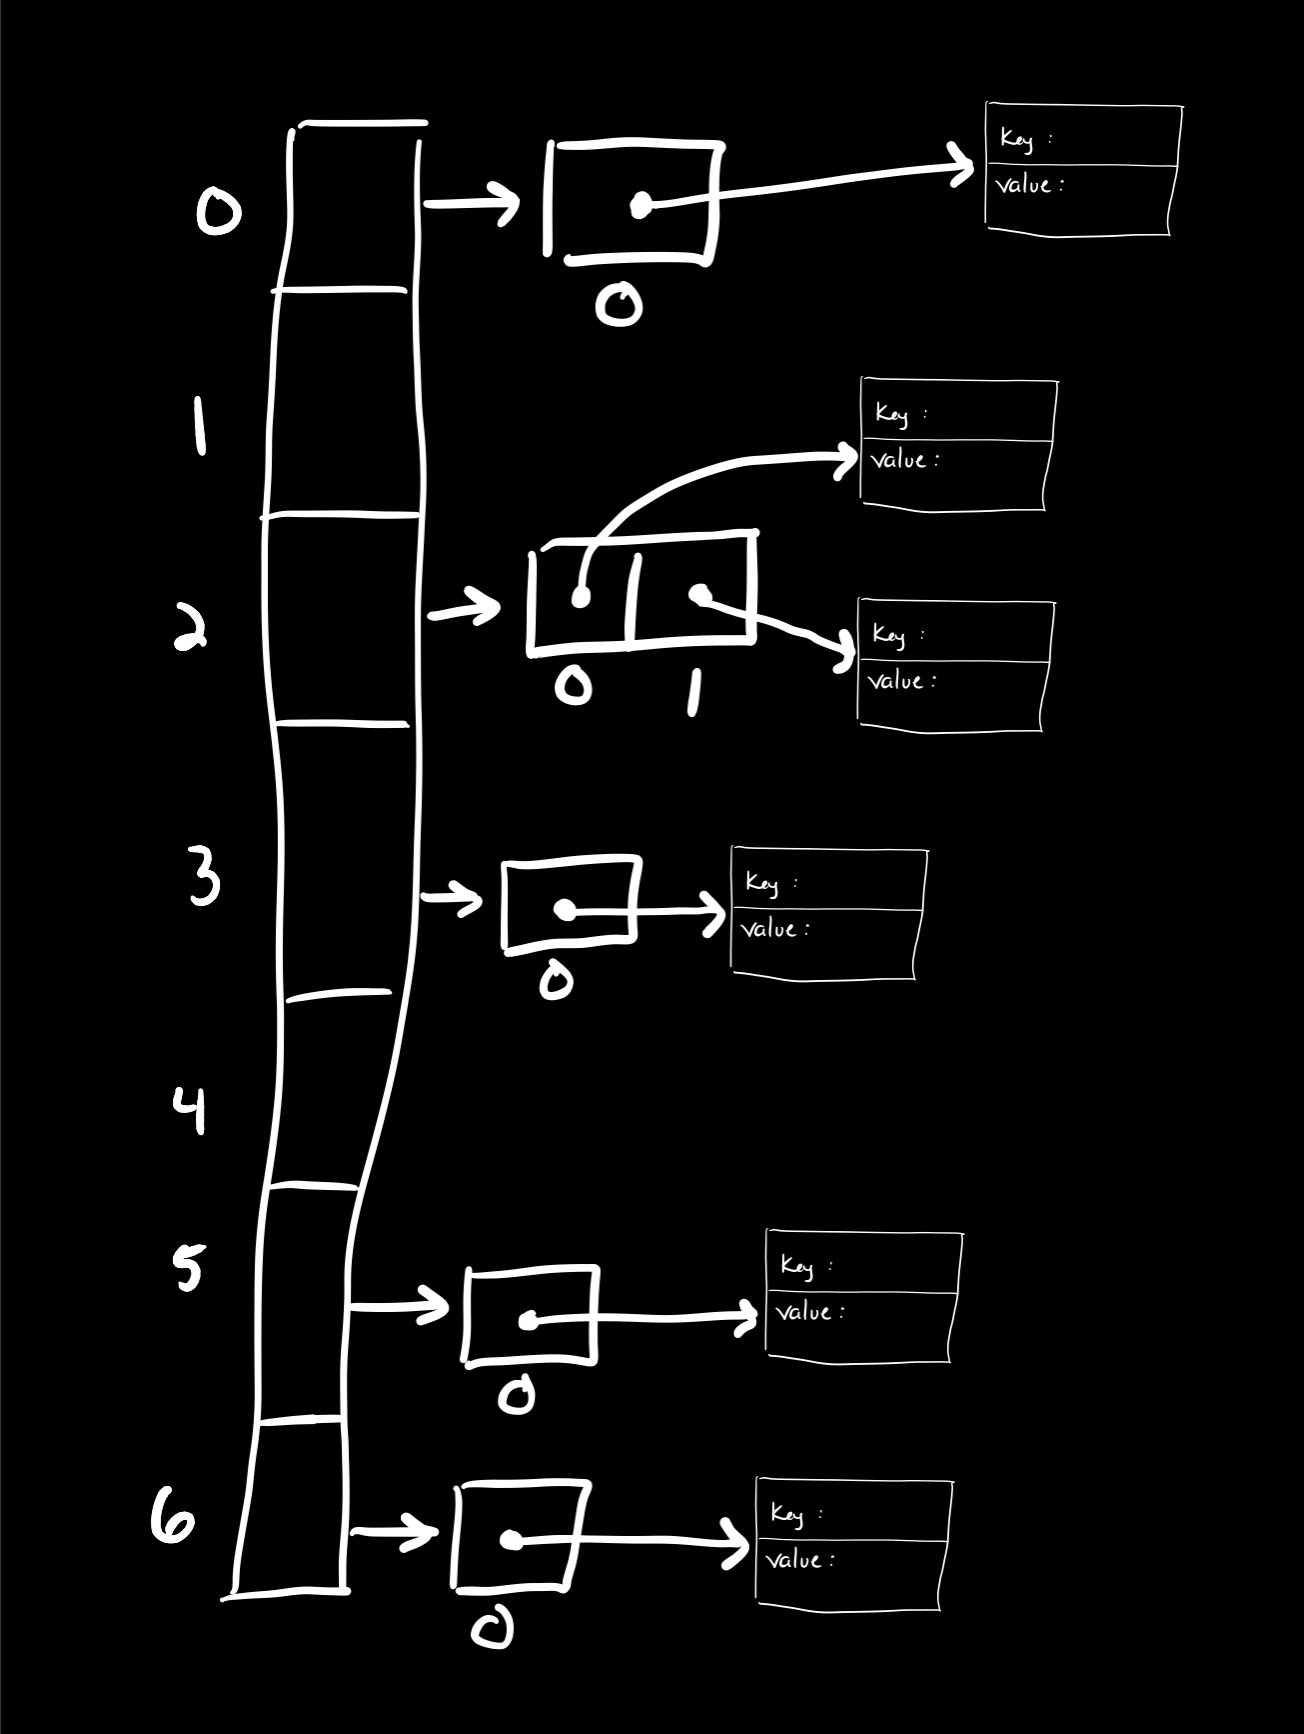 0
Key :
value :
0
1
Key :
value :
2
Key :
value :
0 1
3
Key :
value :
0
4
5
Key :
value :
0
6
Key :
value :
0